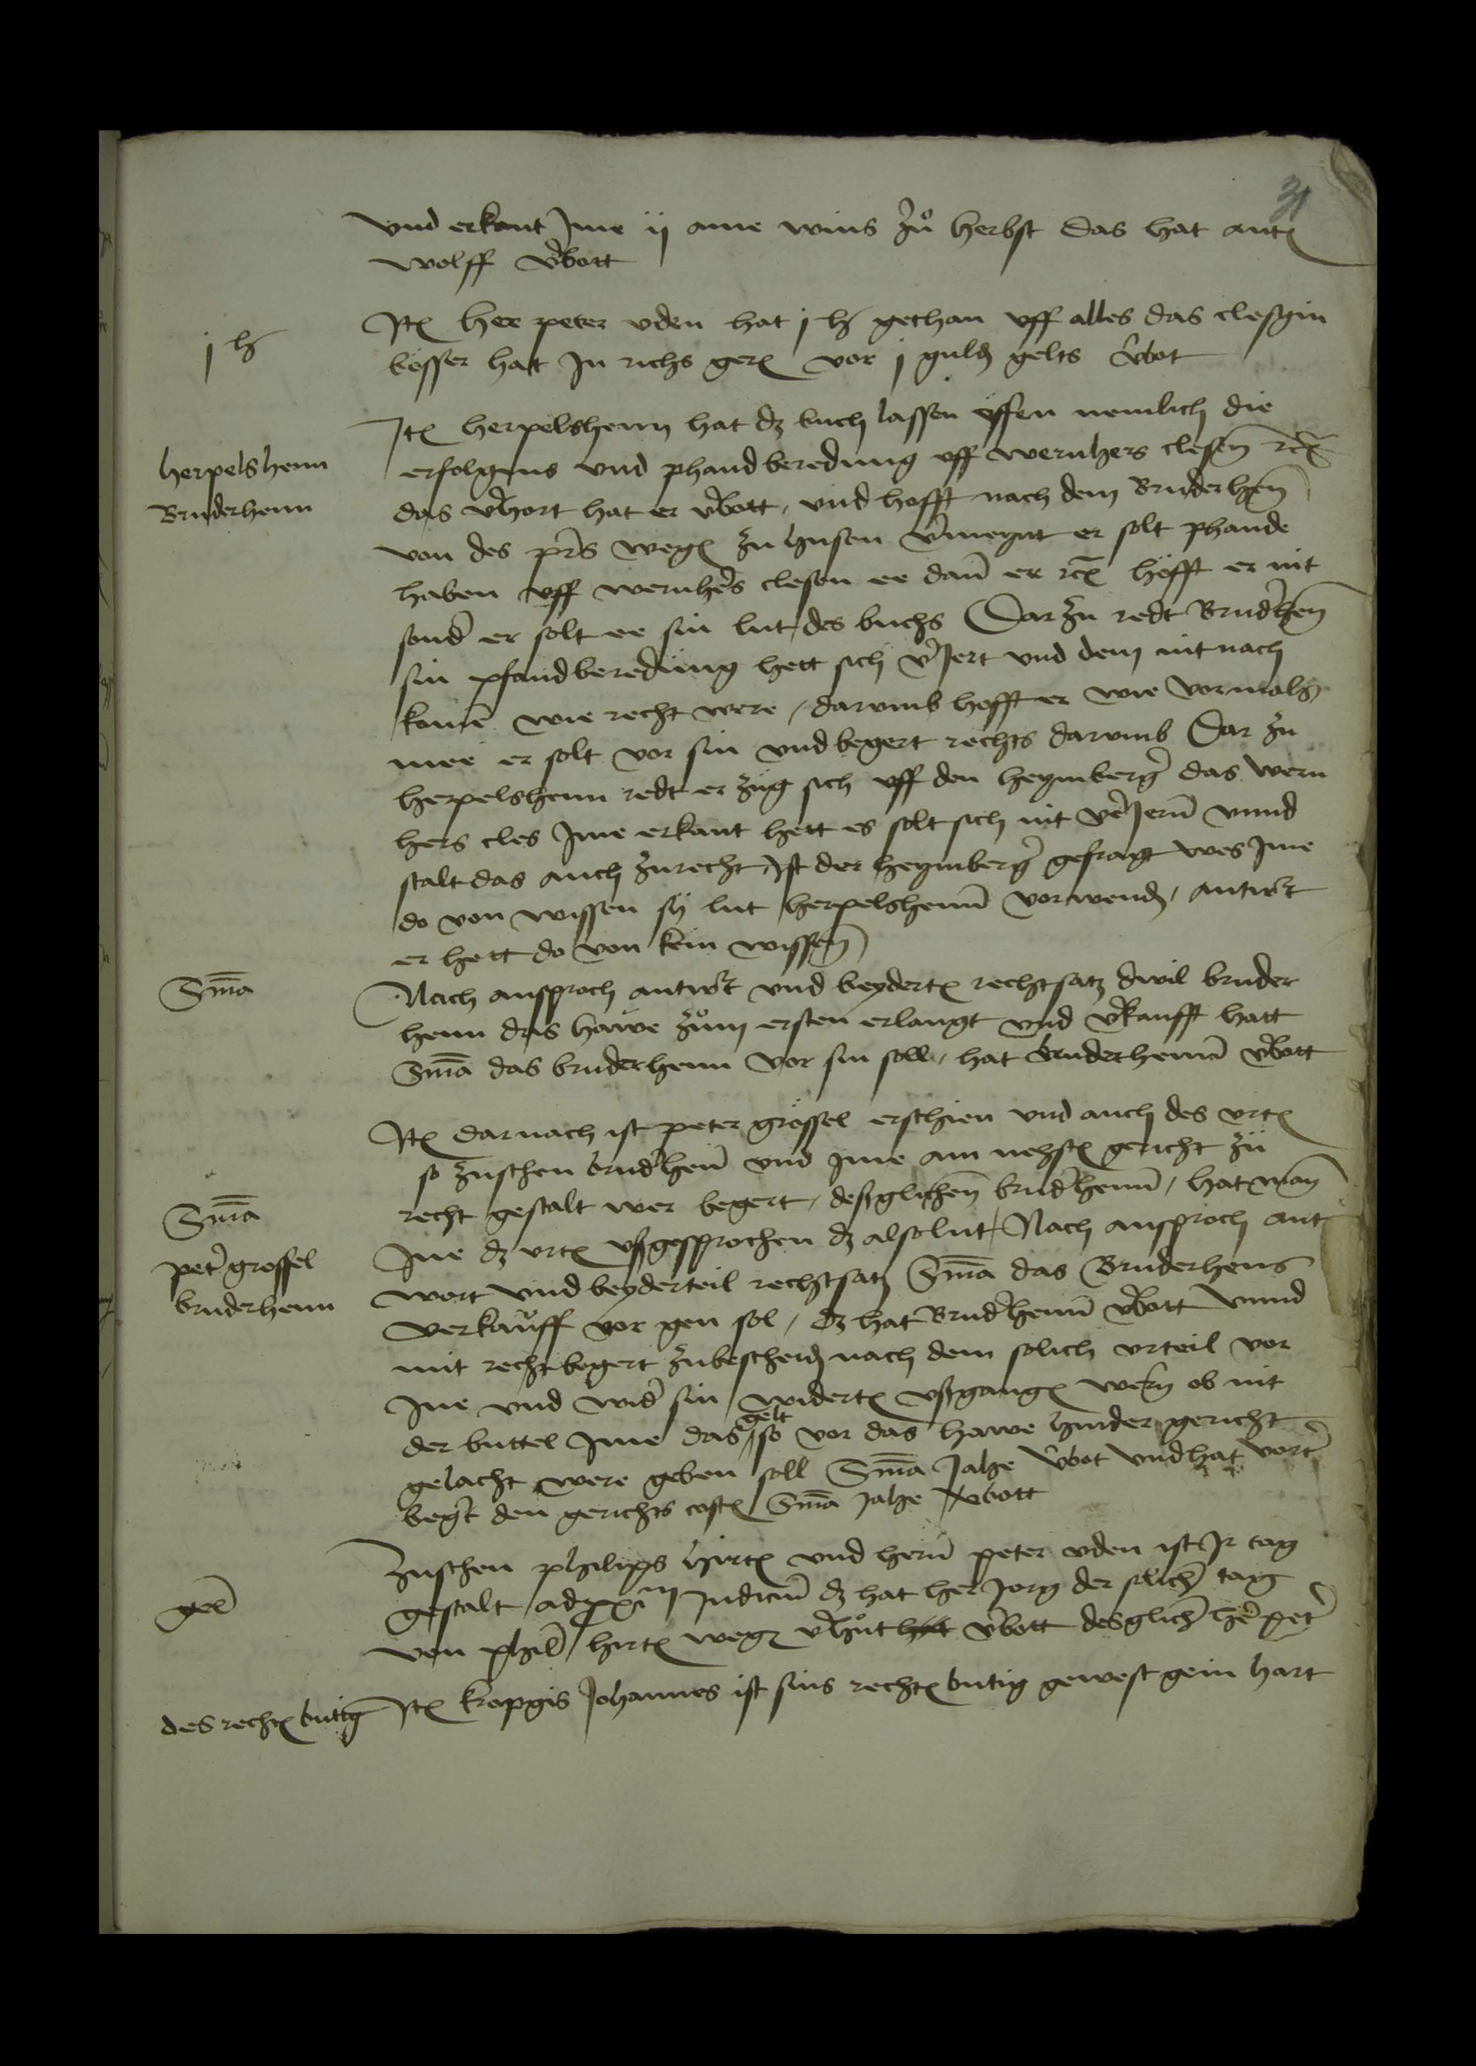 31
vnd erkant Jme ij ame wins zů herbst das hat antz
wolff v̉bott
j h
Itz Her peter vden hat j h gethan vff alles das clesgin
besser hat Jn richs gerz vor j guld gelts v̉bot
herpelshenn
Bruderhenn
Itz herpelshenn hat dz buch lassen vffen nemlich die
erfolgens vnd phandberedung vff wernhers clesen rcz
das v̉hort hat er v̉bott / vnd hofft nach dem Bruderhen
von des prs wegz zu husen v̉meynt er solt phande
haben vff wernhers clesen ee dan er rcz hofft er nit
sond er solt ee sin lut des buchs Dar zu redt Brud'hen
sin pfandberedung hett sich v̉Jert vnd dem nit nach
komē wie recht were / darvmb hofft er wie vormals
mee er solt vor sin vnd begert rechts darvmb Dar zu
herpelshenn redt er züg sich vff den heymberg' das wern
hers cles Jme erkant hett es solt sich nit v̉Jern vnnd
stalt das auch zurecht Ist der heymberg' gefragt wes Jme
do von wissen sy lut herpelshenn vorwend / antw't
er hett do von kein wissen
Sma
Nach ansproch antw't vnd beydertz rechtsatz dwil bruder
henn das hawe zům ersten erlangt vnd v̉kaufft hatt
Sma das bruderhenn vor sin soll / hat bruderhenn v̉bott
Sma
pet' grossel
bruderhenn
Itz darnach ist peter grossel erschien vnd auch des vrtz
so zuschen brud'hen vnd Jme am nehstz gericht zü
recht gestalt wer begert / deßglichen brud'henn / hat man
Jne dz vrtz vßgesprochen dz also lut / Nach ansproch ant
wort vnd beyderteil rechtsatz Sma das Bruderhens
verkauff vor gen sol / dz hat Brud'henn v̉bott vnnd
mit recht begert zubescheid nach dem solich vrteil vor
Jne vnd wid' sin widertz vßgangz wern ob nit
der buttel Jme das gelt so vor das hawe hinder gericht
gelacht were geben soll Sma Jahe v̉bot vnd hat vort'
beg't den gerichts costz Sma jahe v̉bott
gel
Zuschen philips hirtz vnd hern peter vden ist Jr tag
gestalt ad Judiciū dz hat her Jorg der solich' tag
von phil' hirtz wegz v̉hut v̉bott desglich' he' pet'
des rechtz butig
Itz kropgis Johannes ist sins rechtz butig gewest gein hart